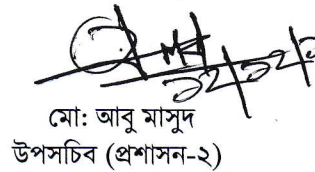 মো: আবু মাসুদ
উপসচিব (প্রশাসন-২)